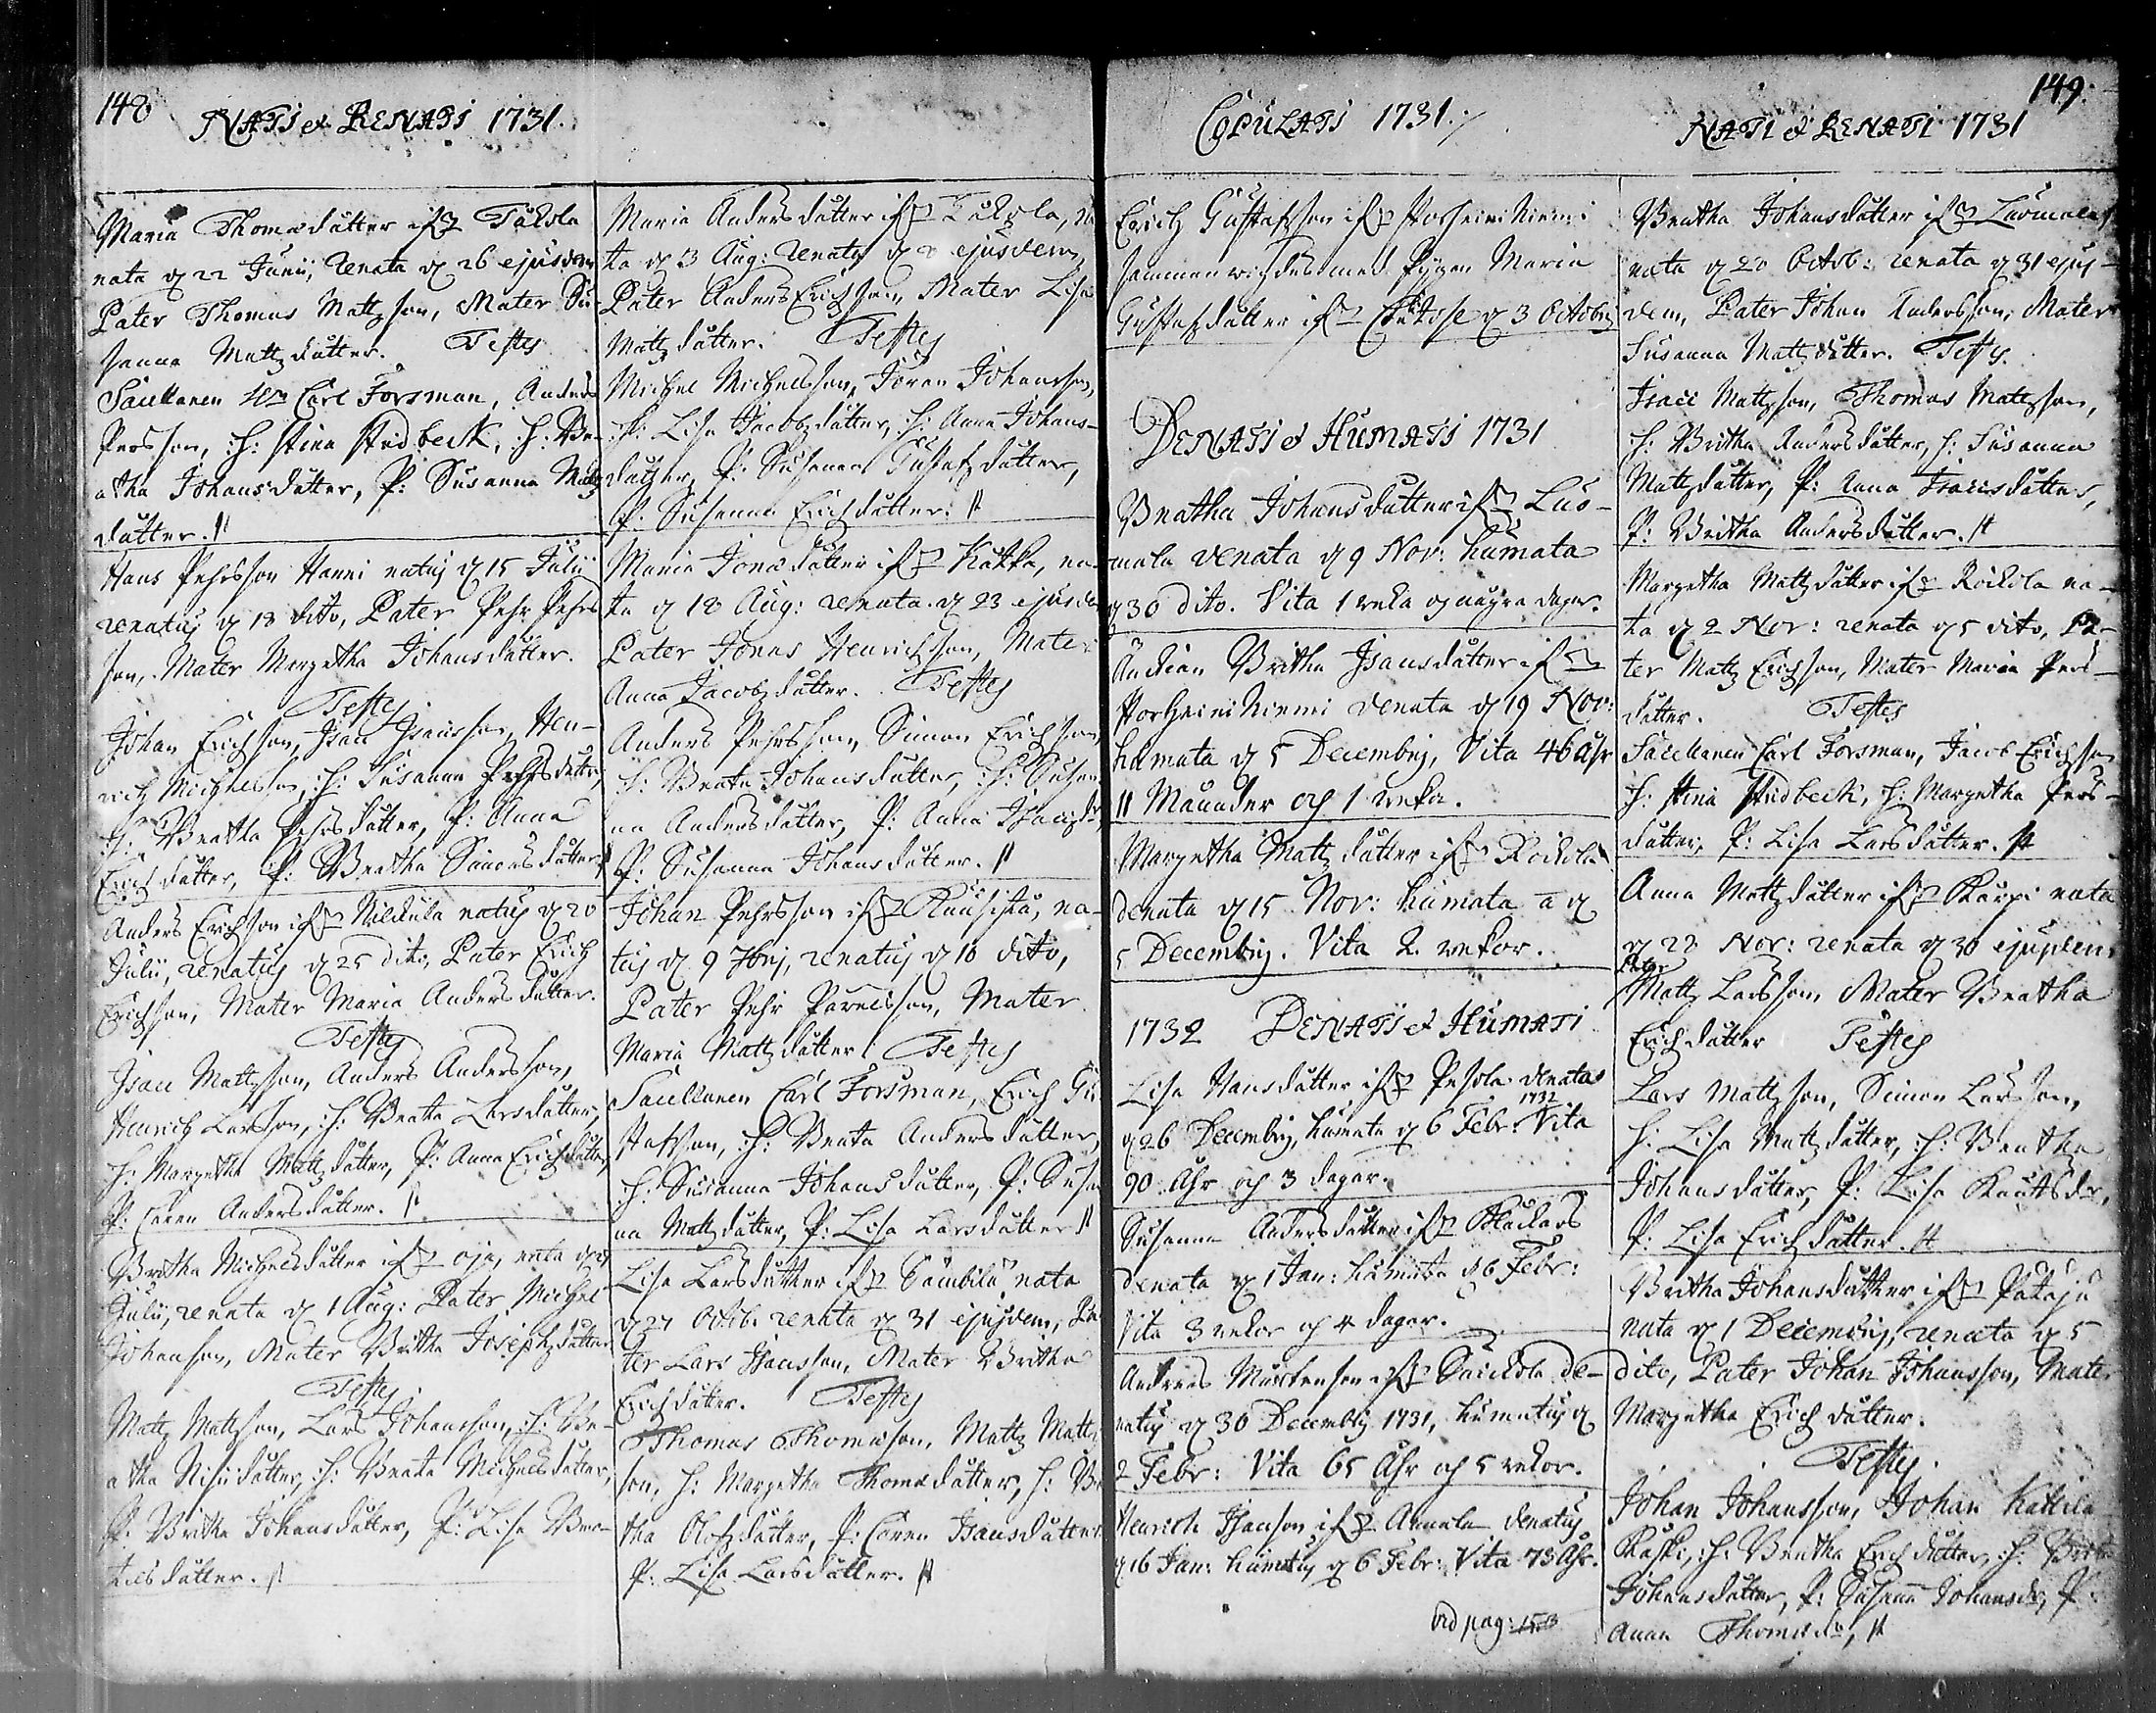 148
NATI et RENATI 1731.
Maria Thomædotter if Tackola
nata d 22 Junii, Renata d 26 ejusdem
Pater Thomas Mattzson, Mater Su-
sanna Mattzdotter. Testes
Sacellanen Hr Carl Forsman, Anders
Persson, H: Stina Stidbeck, H: Be-
atha Johansdotter, P: Susanna Mattz
dotter.
Hans Pehrsson Hanni natus d 15 Julii
renatus d 18 dito, Pater Pehr Pehrs
son, Mater Margetha Johansdotter.
Testes
Johan Erichson, Isac Isacsson, Hen-
rich Michelsson, H: Susanna Pehrsdotter,
H: Beatha Pehrsdotter, P: Anna
Erichdotter, P: Beatha Simonsdotter
Anders Erichson if Nickula natus d 20
Julii, renatus d 25 dito, Pater Erich
Erichson, Mater Maria Andersdotter.
Testes
Isac Mattzson, Anders Andersson,
Henrich Larsson, H: Beata Larsdotter,
H: Margetha Mattzdotter, P: Anna Erichdotter,
P: Caren Andersdotter.
Britha Michelsdotter if Oja, nata d 27
Julii, renata d 1 Aug: Pater Michel
Johanson, Mater Britha Josephzdotter
Testes
Mattz Mattzson, Lars Johansson, H: Be-
atha Sigudotter, H: Beata Michelsdotter,
P: Britha Johansdotter, P: Lisa
dotter.
Maria Andersdotter if Tackola, na
ta d 3 Aug: renata d 8 ejusdem,
Pater Anders Erichson, Mater Lisa
Mattzdotter. Testes
Michel Michelsson, Jöran Johansson,
H: Lisa Jacobzdotter, H: Anna Johans-
dotter, P: Susanna Gustafzdotter,
P: Susanna Erichdotter.
Maria Jonædotter if Kakka, na-
ta d 18 Aug: renata d 23 ejusdem
Pater Jonas Henrichson, Mater
Anna Jacobzdotter. Testes
Anders Pehrsson, Simon Erichson,
H: Beata Johansdotter, H: Susan
na Andersdotter, P: Anna Isacsdr,
P: Susanna Johansdotter.
Johan Pehrsson if Kausista, na-
tus d 9 7brj, renatus d 10 dito,
Pater Pehr Pavelsson, Mater
Maria Mattzdotter. Testes
Sacellanen Carl Forsman, Erich Gu
stafson, H: Beata Andersdotter,
H: Susanna Johansdotter, P: Susan
na Mattzdotter, P: Lisa Larsdotter
Lisa Larsdotter if Sambila nata
d 27 Octob. renata d 31 ejusdem, Pa
ter Lars Isacsson, Mater Britha
Erichdotter. Testes
Thomas Thomæson, Mattz Mattz
son, H: Margetha Thomædotter, H: Be
tha Olofzdotter, P: Caren Isacsdotter
P: Lisa Larsdotter.
COPULATI 1731.
Erich Gustafson if Storheininiemi
sammanvigdes med Pigan Maria
Gustafzdotter if d 3 Octobrj
DENATI et HUMATI 1731
Beatha Johansdotter if Luo-
mala denata d 9 Nov: humata
d 30 dito. Vita 1 weka og några dagar.
Änckian Britha Isacsdotter if
Storheininiemi denata d 19 Nov:
humata d 5 Decembrj, Vita 46 åhr
11 Månader og 1 weka.
Margetha Mattzdotter if Rockola
denata d 15 Nov: humata d
5 Decembrj. Vita 2 wekor.
1732 DENATI et HUMATI
Lisa Hansdotter if Pesola denata
d 26 Decembrj, humata d 6 Febr: 1732 Vita
90 Åhr og 3 dagar.
Susanna Andersdotter if
denata d 1 Jan: humata d 6 Febr:
Vita 3 wekor og 4 dagar.
Andreas Mårtenson if Sackola de-
natus d 30 Decembrj 1731, humatus d
2 Febr: Vita 65 Åhr og 5 wekor.
Henrich Isacson if Annala denatus
d 16 Jan: humatus d 6 Febr: Vita 73 Åhr.
vid pag: 153
149:
NATI et RENATI 1731
Beatha Johansdotter if Luomala
nata d 28 Octob: renata d 31 ejus-
dem, Pater Johan Andersson, Mater
Susanna Mattzdotter. Testes.
Isac Mattzson, Thomas Mattzson,
H: Britha Andersdotter, H: Susanna
Mattzdotter, P: Anna Isacsdotter,
P: Britha Andersdotter.
Margetha Mattzdotter if Rockola na-
ta d 2 Nov: renata d 5 dito, Pa-
ter Mattz Erichson, Mater Maria Pers-
dotter. Testes
Sacellanen Carl Forsman, Jacob Erichson
H: Stina Stidbeck, H: Margetha Pers-
dotter, P: Lisa Larsdotter.
Anna Mattzdotter if Karpi nata
d 23 Nov: renata d 30 ejusdem
Pater
Mattz Larsson, Mater Beatha
Erichdotter Testes
Lars Mattzson, Simon Larsson,
H: Lisa Mattzdotter, H: Beatha
Johansdotter, P: Lisa Knutsdr,
P: Lisa Erichdotter.
Britha Johansdotter if Pataju
nata d 1 Decembrj, renata d 5
dito, Pater Johan Johansson, Mater
Margetha Erichdotter.
Testes.
Johan Johansson, Johan Kattila
Raski, H: Beatha Erichdotter, H: Brita
Johansdotter, P: Susanna Johansdr, P.
Anna Thomædr,